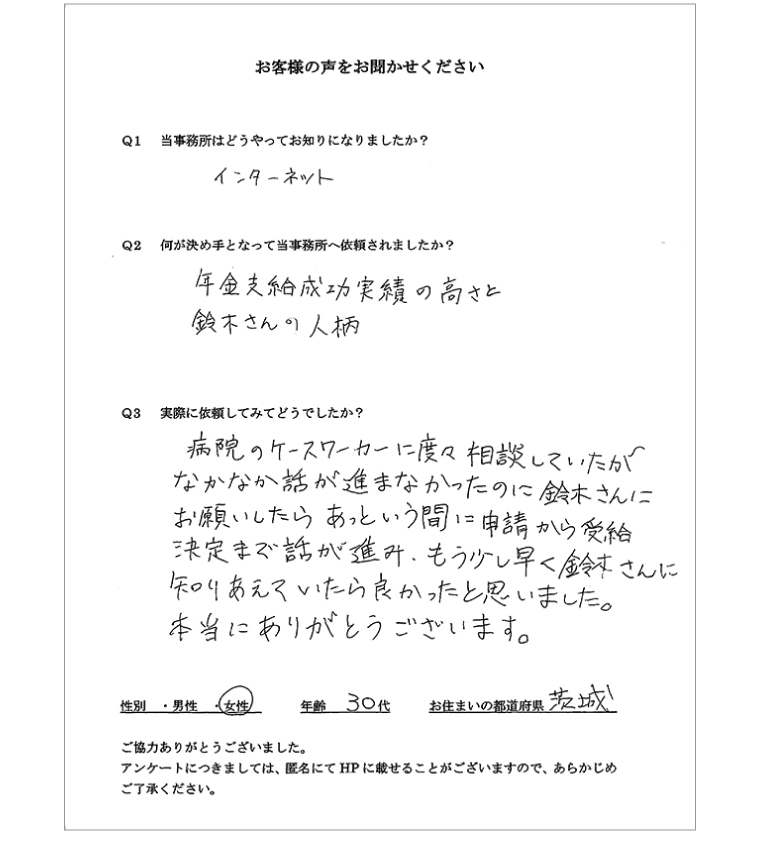 お客様の声をお聞かせください
Q1 当事務所はどうやってお知りになりましたか？
インターネット
Q2 何が決め手となって当事務所へ依頼されましたか？
年金支給成功実績の高さと
鈴木さんの人柄
Q3 実際に依頼してみてどうでしたか？
病院のケースワーカーに度々相談していたが
なかなか話が進まなかったのに鈴木さんに
お願いしたらあっという間に申請から受給
決定まで話が進み、もう少し早く鈴木さんに
知りあえていたら良かったと思いました。
本当にありがとうございます。
性別 ・男性 ・女性 年齢 30代 お住まいの都道府県 茨城
ご協力ありがとうございました。
アンケートにつきましては、匿名にてHPに載せることがございますので、あらかじめ
ご了承ください。